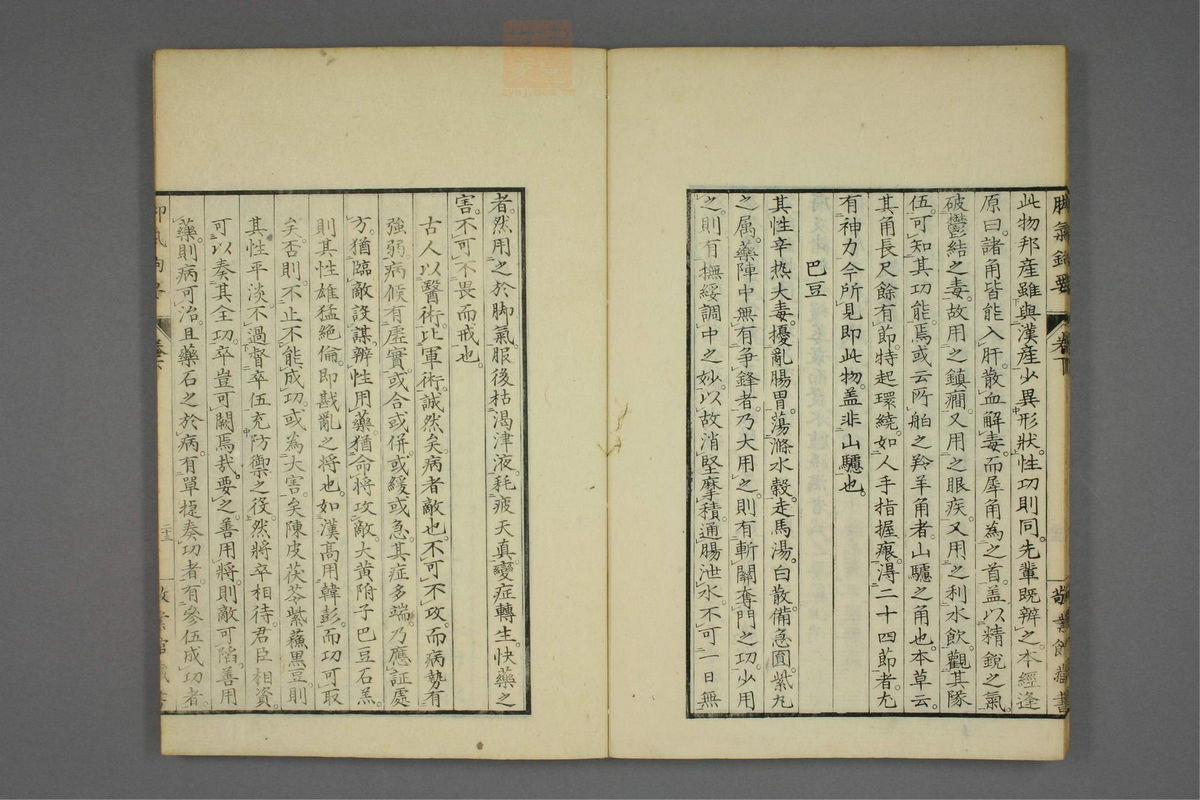 脚氣鉤要 卷下 敬業館藏書
此物邦產雖與漢產少異形狀。性功則同。先輩既辨之。本經逢
原曰。諸角皆能入肝。散血解毒。而犀角為之首。盖以精銳之氣。
破鬱結之毒。故用之鎮癇。又用之眼疾。又用之利水飲。觀其隊
伍。可知其功能焉。或云所舶之羚羊角者。山驢之角也。本草云。
其角長尺餘。有節。特起環繞。如人手指握痕。得二十四節者。尢
有神力。今所見即此物。盖非山驢也。
巴豆
其性辛热大毒。擾亂腸胃。蕩滌水穀。走馬湯。白散。備急圓。紫九
之属。藥陣中無有争鋒者。乃大用之。則有斬關奪門之功。少用
之。則有撫綏調中之妙。以故消堅摩積。通腸泄水。不可一日無
者。然用之於脚氣。服後枯渴津液。耗疲天真。變症轉生。快藥之
害。不可不畏而戒也。
古人以醫術比軍術。誠然矣。病者敵也。不可不攻。而病勢有
強弱。病候有虛實。或合或併。或緩或急。其症多端。乃應証處
方。猶臨敵設謀。辨性用藥。猶命將攻敵。大黄附子巴豆石羔
則其性雄猛絶倫。即戡亂之将也。如漢高用韓彭。而功可取
矣。否則不止不能成功。或為大害矣。陳皮茯苓紫蘇黒豆。則
其性平淡。不過督卒伍充防禦之役。然將卒相待。君臣相資。
可以奏其全功。卒豈可闕焉哉。要之善用將。則敵可陷。善用
藥。則病可治。且藥石之於病。有單捷奏功者。有參伍成功者。